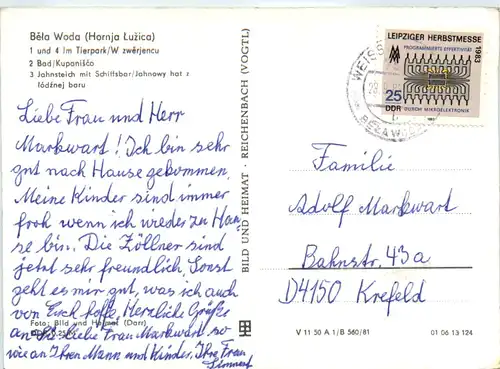 Běla Woda (Hornja Łužica)
1 und 4 Im Tierpark/W zwěrjencu
2 Bad/Kupanišćo
3 Jahnsteich mit Schiffsbar/Jahnowy hat z
łódźnej baru
Liebe Frau und Herr
Markwart! Ich bin sehr
gut nach Hause gekommen.
Meine Kinder sind immer
froh wenn ich wieder zu Hau-
se bin. Die Zöllner sind
jetzt sehr freundlich. Sonst
geht es mir gut, was ich auch
von Euch hoffe. Herzliche Grüße
an Sie liebe Frau Markwart so
wie an Ihren Mann und Kinder. Ihre Frau
Foto: Bild und Heimat (Darr)
BILD UND HEIMAT - REICHENBACH (VOGTL)
LEIPZIGER HERBSTMESSE
1983
MM
PROGRAMMIERTE EFFEKTIVITÄT
25
DDR
DURCH MIKROELEKTRONIK
WEISS
BĚŁA WODA
Familie
Adolf Markwart
Bahnstr. 43a
D4150 Krefeld
V 11 50 A 1/B 560/81
01 06 13 124